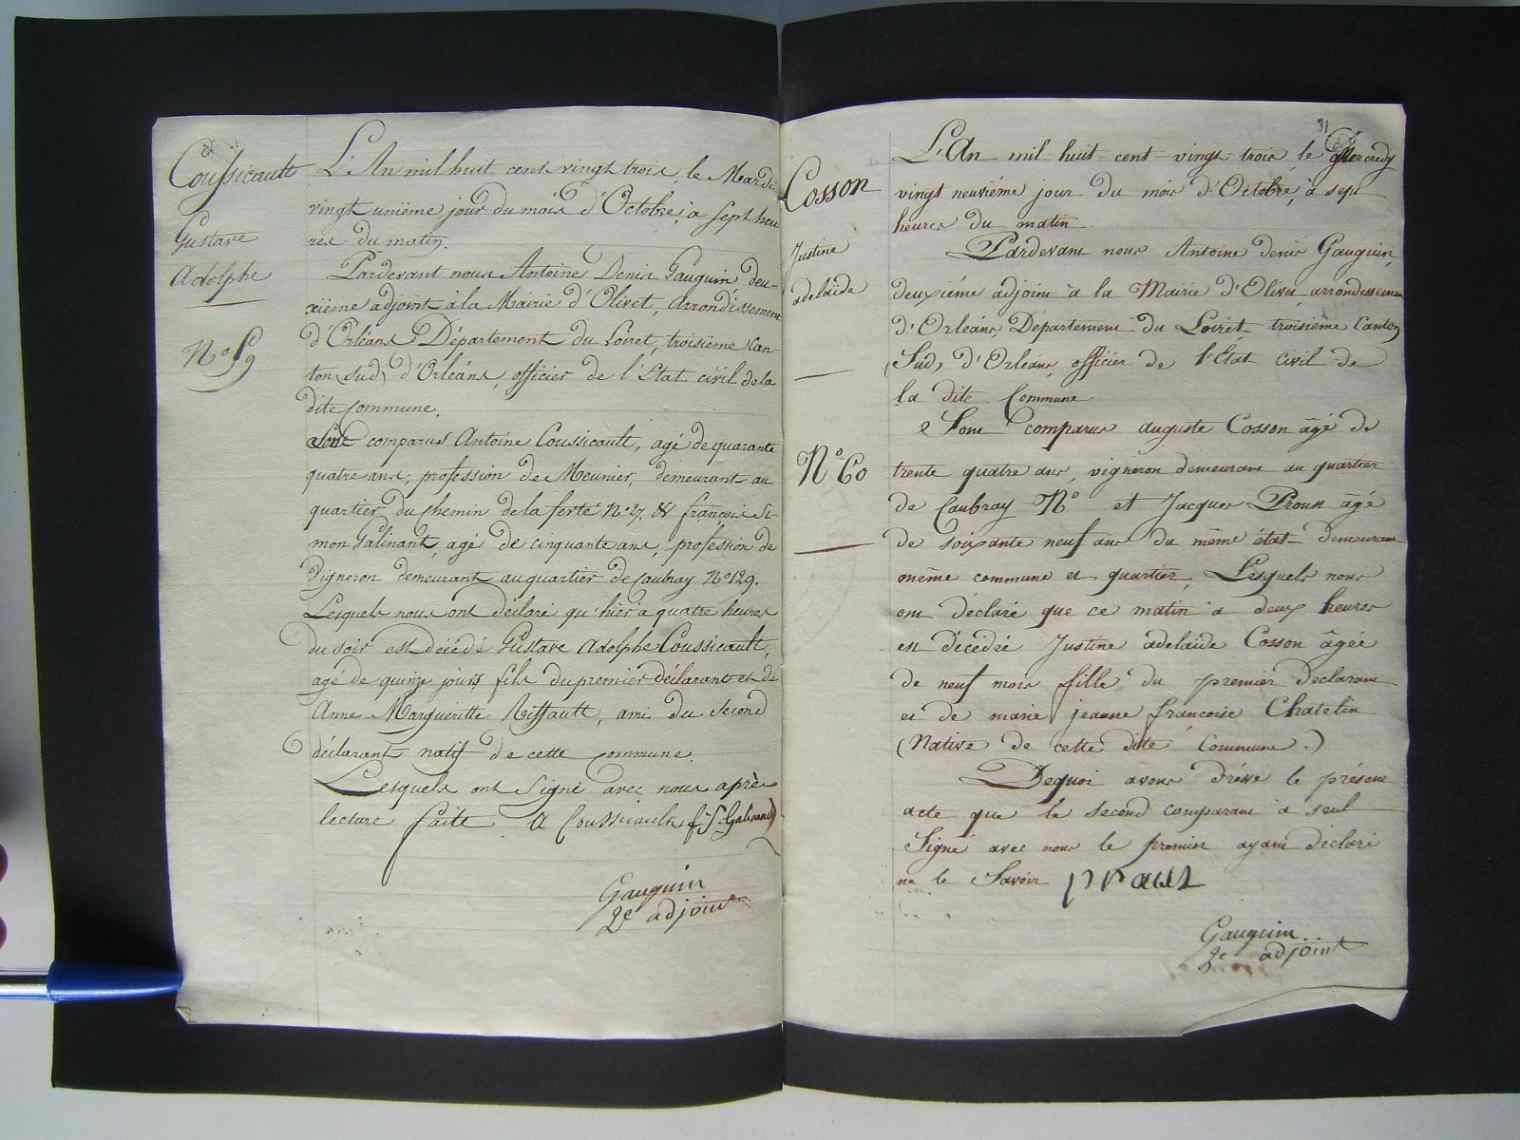 Coussicault
Gustave
Adolphe
N.o 59
L'An mil huit cent vingt trois, le Mardi
vingt unième jour du mois d'Octobre, à sept heu
res du matin.
Pardevant nous Antoine Denis Gauguin, deu-
xième adjoint à la Mairie d'Olivet, Arrondissement
d'Orléans, Département du Loiret, troisième Can
ton (sud) d'Orléans, officier de l'Etat civil de la
dite Commune.
Sont comparus Antoine Coussicault, agé de quarante
quatre ans, profession de Meunier, demeurant au
quartier du Chemin de la ferté N.o 7, & françois Si-
mon Galinant, agé de cinquante ans, profession de
Vigneron demeurant au quartier de Caubray N.o 129.
Lesquels nous ont déclaré qu'hier à quatre heures
du soir est décédé Gustave Adolphe Coussicault,
agé de quinze jours fils du premier déclarant et de
Anne Margueritte Riffault, ami du second
déclarant natif de cette commune.
Lesquels ont Signé avec nous après
lecture faite. A Coussicault f. S. Galinand
Gauguin
2e adjoint
31
Cosson
Justine
adelaïde
N.o 60
L'An mil huit cent vingt trois le Mercredy
vingt neuvième jour du mois d'Octobre, à sept
heures du matin
Pardevant nous Antoine denis Gauguin,
deuxieme adjoint à la Mairie d'Olivet, arrondissement
d'Orléans, Département du Loiret troisième Canton
(Sud) d'Orléans, officier de l'Etat Civil de
la dite Commune
Sont comparus auguste Cosson âgé de
trente quatre ans, vigneron demeurant au quartier
de Caubray N.o et Jacques Proust âgé
de soixante neuf ans du même état demeurant
même commune et quartier, Lesquels nous
ont déclaré que ce matin à deux heures
est décédée Justine adelaïde Cosson âgée
de neuf mois fille du premier declarant
et de marie jeanne francoise Chatelin
(Native de cette dite Commune.)
Dequoi avons dréssé le présent
acte que le second comparant a seul
Signé avec nous le premier ayant déclaré
ne le Savoir Proust
Gauguin
2e adjoint